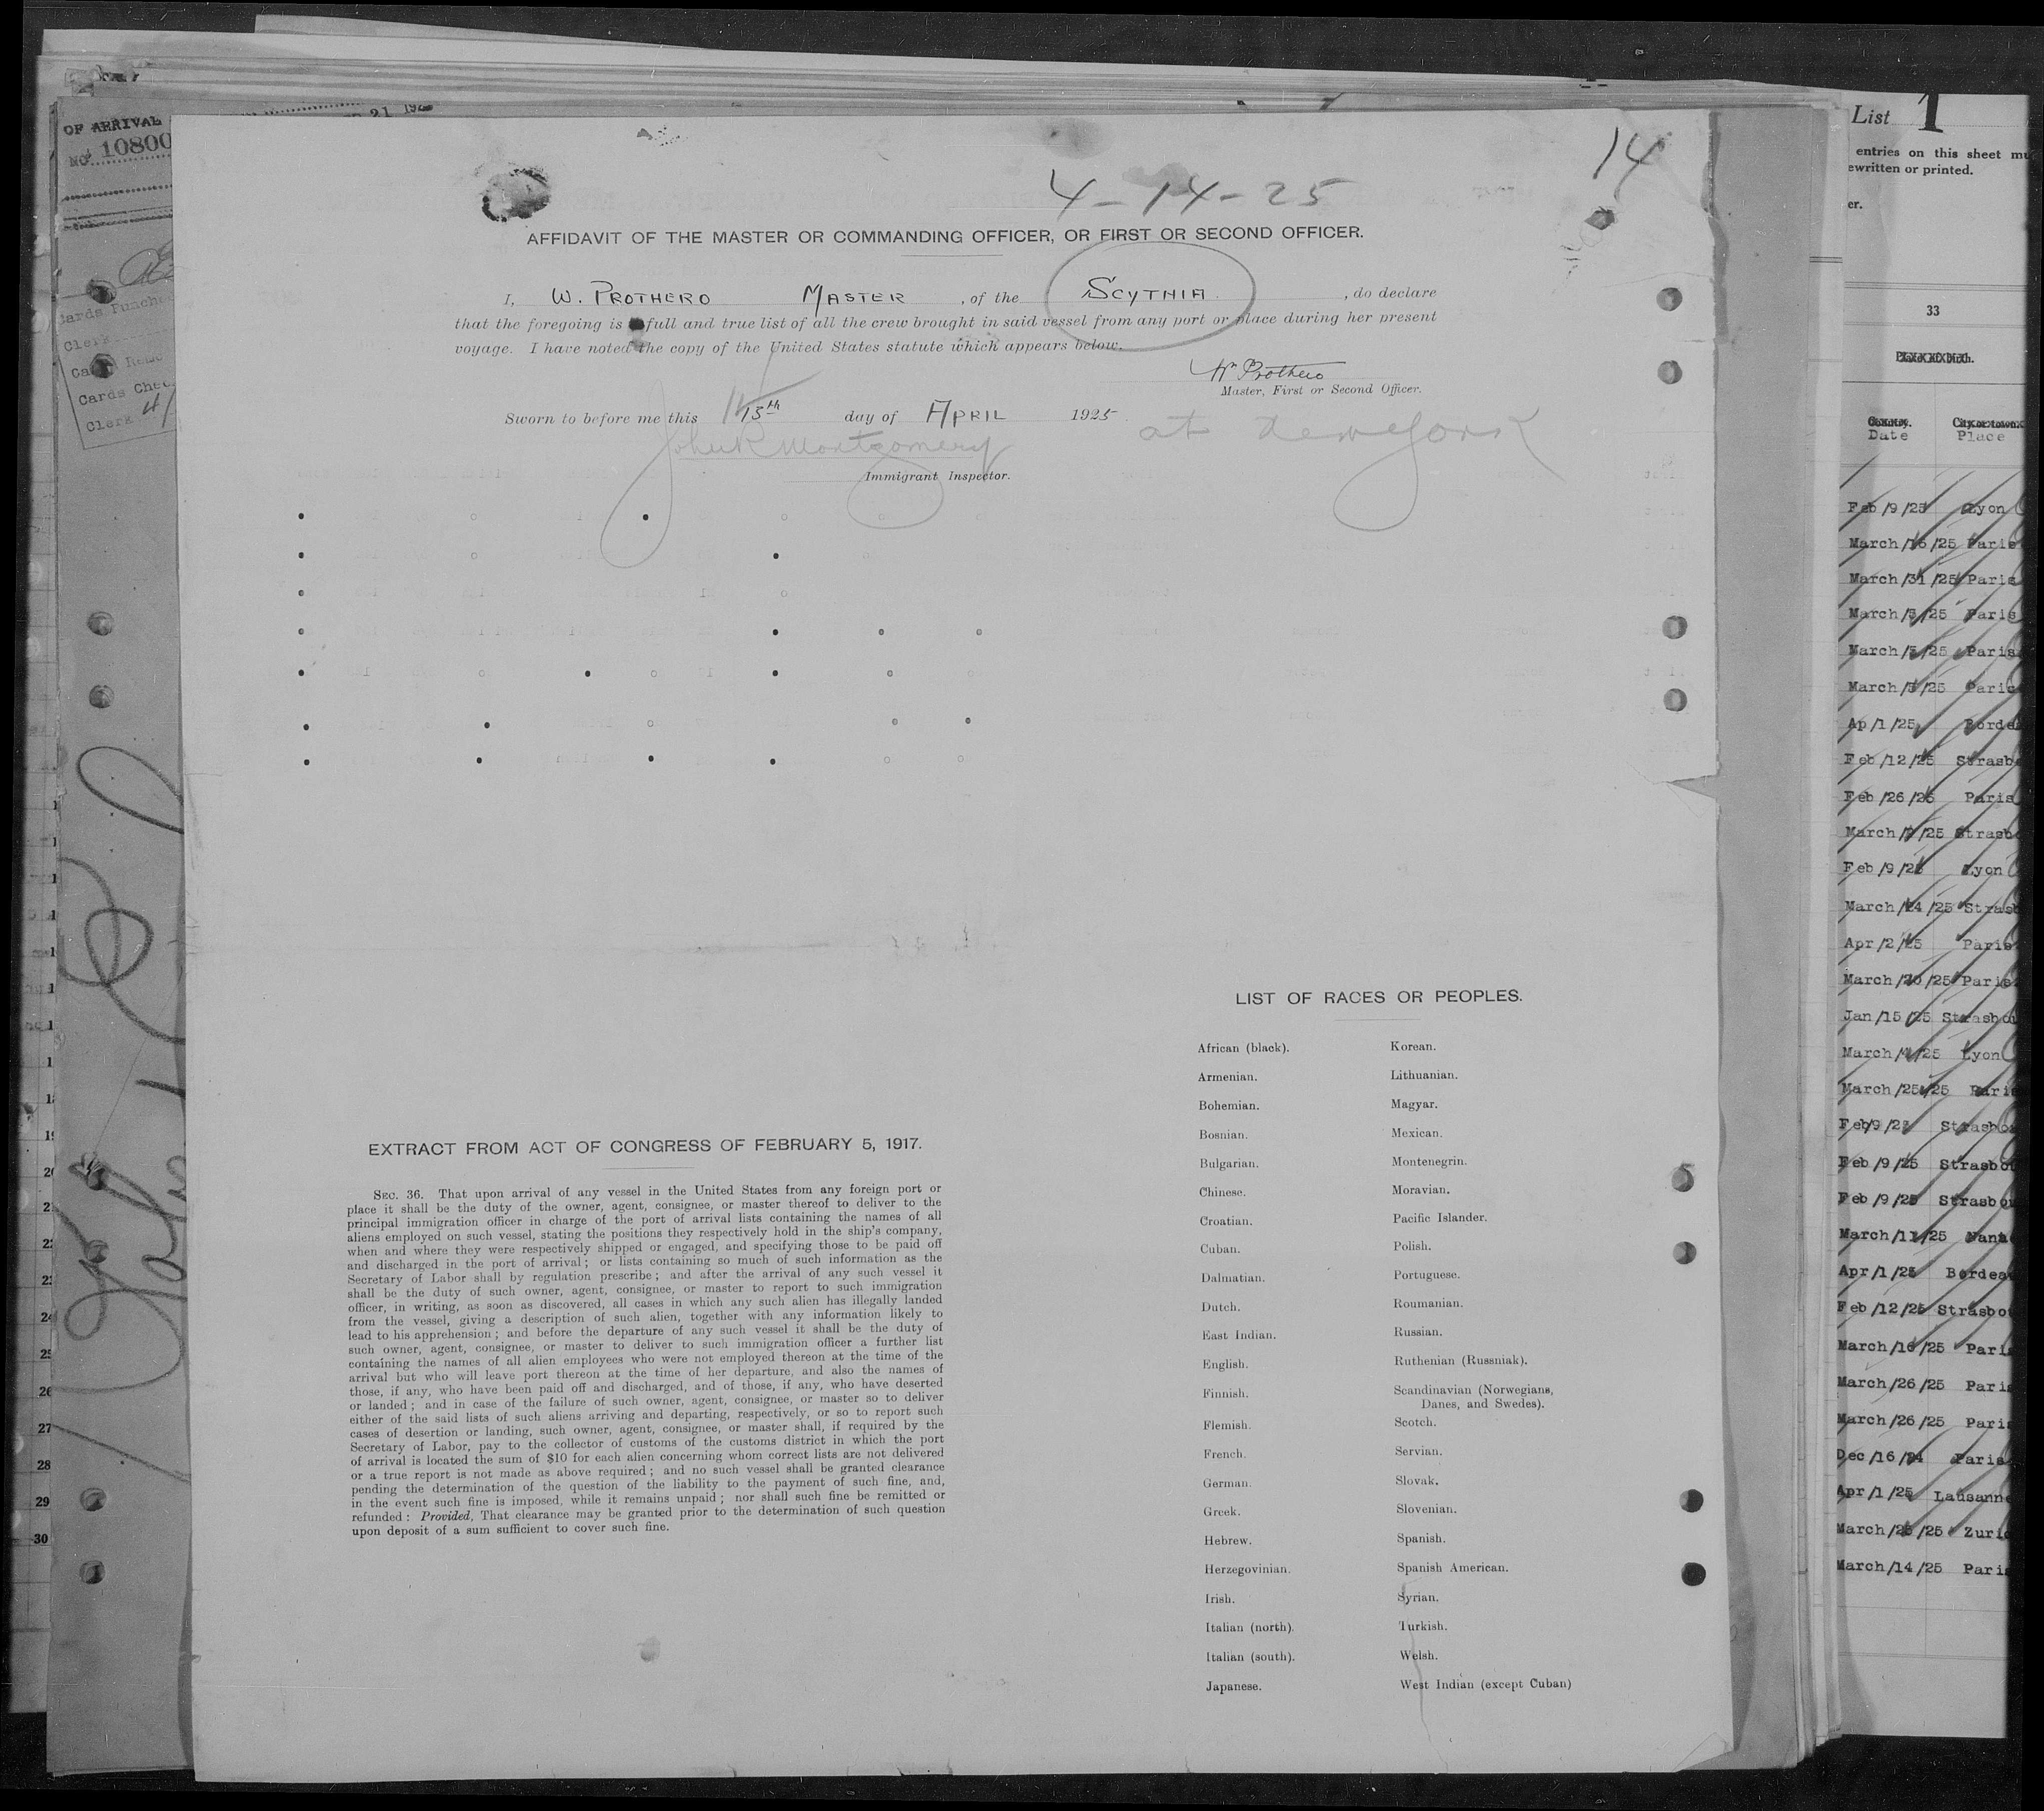 OF ARRIVAL
No. 10800
21 192
Cards Punche
Clerk
Cards Chec
Clerk
14
4-14-25
AFFIDAVIT OF THE MASTER OR COMMANDING OFFICER, OR FIRST OR SECOND OFFICER.
I, W. PROTHERO MASTER, of the SCYTHIA, do declare
that the foregoing is full and true list of all the crew brought in said vessel from any port or place during her present
voyage. I have noted the copy of the United States statute which appears below.
Wm Prothero
Master, First or Second Officer.
Sworn to before me this 13th day of APRIL 1925 at New York
John R Montgomery
Immigrant Inspector.
EXTRACT FROM ACT OF CONGRESS OF FEBRUARY 5, 1917.
SEC. 36. That upon arrival of any vessel in the United States from any foreign port or
place it shall be the duty of the owner, agent, consignee, or master thereof to deliver to the
principal immigration officer in charge of the port of arrival lists containing the names of all
aliens employed on such vessel, stating the positions they respectively hold in the ship's company,
when and where they were respectively shipped or engaged, and specifying those to be paid off
and discharged in the port of arrival; or lists containing so much of such information as the
Secretary of Labor shall by regulation prescribe; and after the arrival of any such vessel it
shall be the duty of such owner, agent, consignee, or master to report to such immigration
officer, in writing, as soon as discovered, all cases in which any such alien has illegally landed
from the vessel, giving a description of such alien, together with any information likely to
lead to his apprehension; and before the departure of any such vessel it shall be the duty of
such owner, agent, consignee, or master to deliver to such immigration officer a further list
containing the names of all alien employees who were not employed thereon at the time of the
arrival but who will leave port thereon at the time of her departure, and also the names of
those, if any, who have been paid off and discharged, and of those, if any, who have deserted
or landed; and in case of the failure of such owner, agent, consignee, or master so to deliver
either of the said lists of such aliens arriving and departing, respectively, or so to report such
cases of desertion or landing, such owner, agent, consignee, or master shall, if required by the
Secretary of Labor, pay to the collector of customs of the customs district in which the port
of arrival is located the sum of $10 for each alien concerning whom correct lists are not delivered
or a true report is not made as above required; and no such vessel shall be granted clearance
pending the determination of the question of the liability to the payment of such fine, and,
in the event such fine is imposed, while it remains unpaid; nor shall such fine be remitted or
refunded: Provided, That clearance may be granted prior to the determination of such question
upon deposit of a sum sufficient to cover such fine.
LIST OF RACES OR PEOPLES.
African (black). Korean.
Armenian. Lithuanian.
Bohemian. Magyar.
Bosnian. Mexican.
Bulgarian. Montenegrin.
Chinese. Moravian.
Croatian. Pacific Islander.
Cuban. Polish.
Dalmatian. Portuguese.
Dutch. Roumanian.
East Indian. Russian.
English. Ruthenian (Russniak).
Finnish. Scandinavian (Norwegians,
Danes, and Swedes).
Flemish. Scotch.
French. Servian.
German. Slovak.
Greek. Slovenian.
Hebrew. Spanish.
Herzegovinian. Spanish American.
Irish. Syrian.
Italian (north). Turkish.
Italian (south). Welsh.
Japanese. West Indian (except Cuban)
List 1
entries on this sheet mu
ewritten or printed.
er.
33
Date Place
Feb/9/25 Lyon
March/16/25 Paris
March/31/25 Paris
March/3/25 Paris
March/3/25 Paris
March/3/25 Paris
Ap/1/25 Borde
Feb/12/25 Strasb
Feb/26/25 Paris
March/ /25 Strasb
Feb/9/25 Lyon
March/24/25 Strasb
Apr/2/25 Paris
March/20/25 Paris
Jan/15/25 Strasbou
March/4/25 Lyon
March/25/25 Paris
Feb/9/25 Strasbo
Feb/9/25 Strasbo
Feb/9/25 Strasbou
March/11/25 Nant
Apr/1/25 Bordea
Feb/12/25 Strasbou
March/16/25 Paris
March/26/25 Paris
March/26/25 Paris
Dec/16/24 Paris
Apr/1/25 Lausanne
March/25/25 Zuric
March/14/25 Paris
20
21
22
23
24
25
26
27
28
29
30